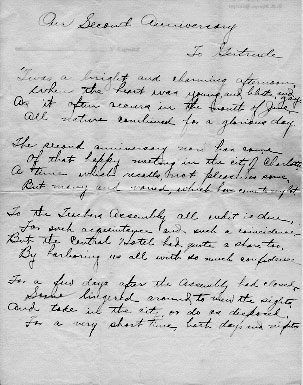 Our Second Anniversary
To Gertrude
'Twas a bright and charming afternoon,
When the heart was young, and blithe and gay
As it often occurs in the month of June
All nature combined for a glorious day
The second anniversary now has come
Of that happy meeting in the city Charlotte
A time which recalls, not pleasures some,
But many and varied, which
To the Assembly all credit is due,
For such acquaintance and such a coincidence
But the Central Hotel had quite a share too,
By harboring us all with so much confidence.
For a few days after the Assembly had closed,
Some lingered around, to view the sights
And take in the city, or do as disposed
For a very short time, both days and nights